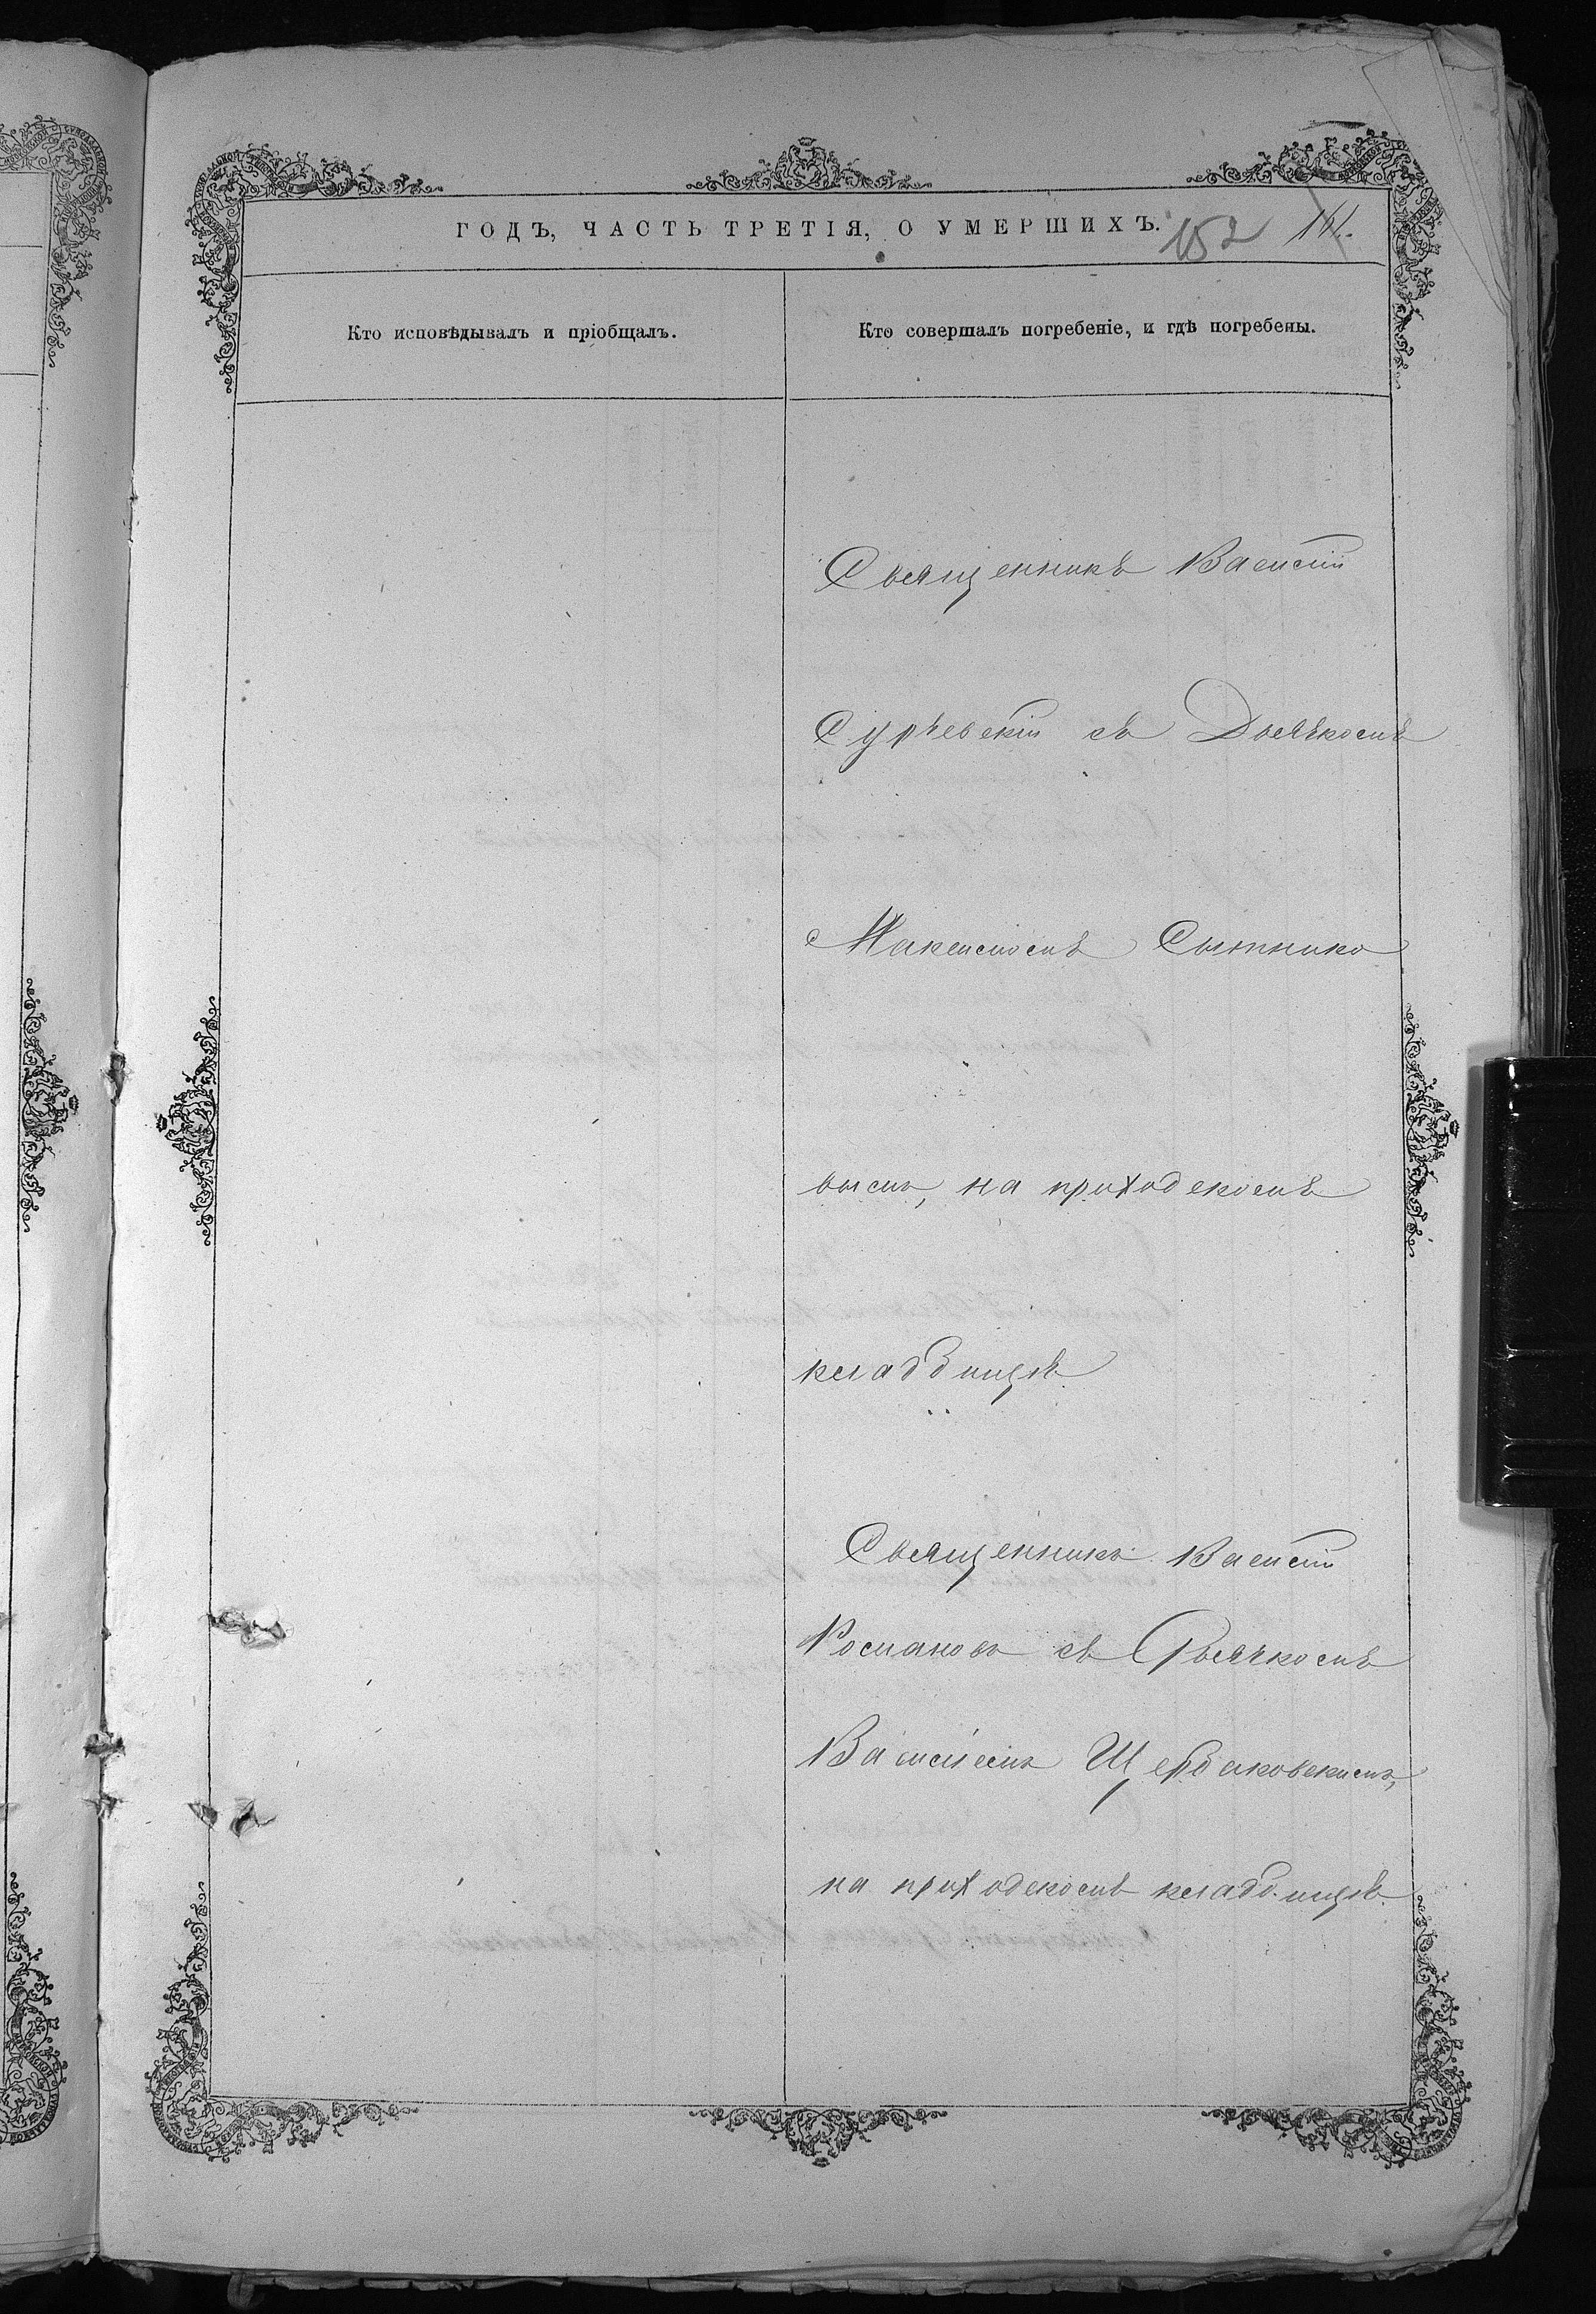 ГОДЪ, ЧАСТЬ ТРЕТІЯ, О УМЕРШИХЪ. 152
Кто исповѣдывалъ и пріобщалъ.
Кто совершалъ погребеніе, и гдѣ погребены.
Священникъ Василій
Сурѣевскій съ Дьячкомъ
Максимомъ Сытнико
вымъ, на приходскомъ
кладбищѣ
Священникъ Василій
Романовъ съ Дьячкомъ
Василіемъ Щербаковскимъ,
на приходскомъ кладбищѣ.